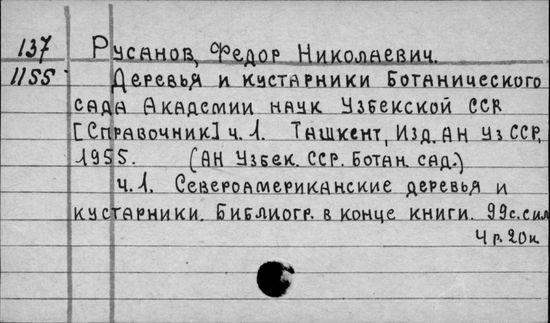 137 Русанов, Федор Николаевич.
1155 Деревья и кустарники Ботанического
сада Академии наук Узбекской ССР
[Справочник] ч.1. Ташкент, Изд. АН УзССР,
1955. (АН Узбек. ССР. Ботан. сад.)
ч.1. Североамериканские деревья и
кустарники. Библиогр. в конце книги. 99с. сил
4р. 20к